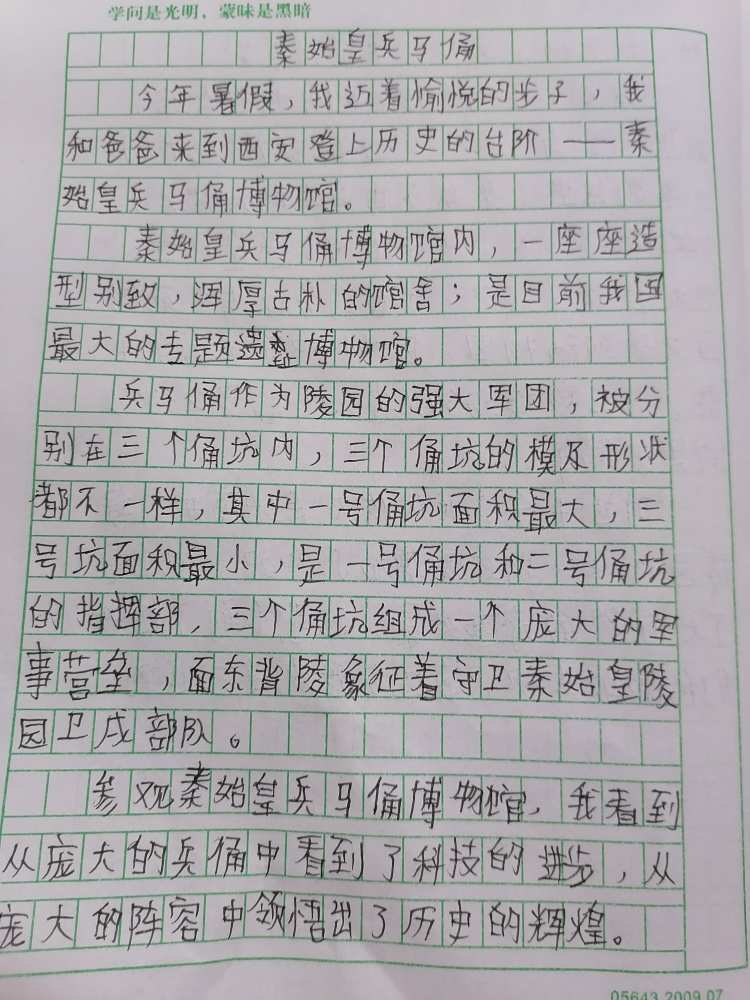 学问是光明，蒙昧是黑暗
秦始皇兵马俑
今年暑假，我迈着愉悦的步子，我
和爸爸来到西安登上历史的台阶——秦
始皇兵马俑博物馆。
秦始皇兵马俑博物馆内，一座座造
型别致，浑厚古朴的馆舍；是目前我国
最大的专题遗址博物馆。
兵马俑作为陵园的强大军团，被分
别在三个俑坑内，三个俑坑的模及形状
都不一样，其中一号俑坑面积最大，三
号坑面积最小，是一号俑坑和二号俑坑
的指挥部，三个俑坑组成一个庞大的军
事营垒，面东背陵象征着守卫秦始皇陵
园卫戍部队。
参观秦始皇兵马俑博物馆，我看到
从庞大的兵俑中看到了科技的进步，从
庞大的阵容中领悟出了历史的辉煌。
05643 2009.07